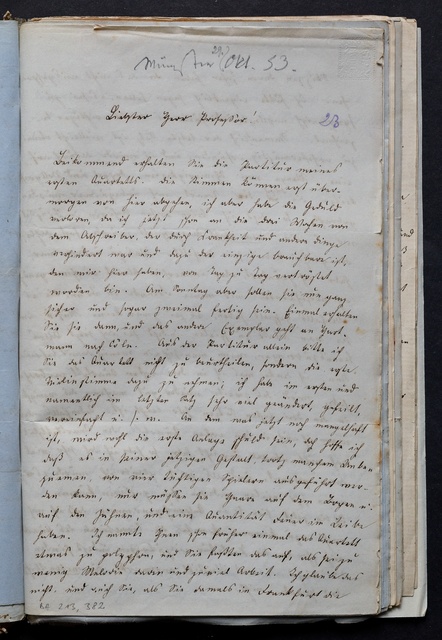 Münster 29/ Okt. 53.
Liebster Herr Professor!
23
Beikommend erhalten Sie die Partitur meines
ersten Quartetts. Die Stimmen können erst über-
morgen von hier abgehen, ich aber habe die Geduld
verloren, da ich jetzt schon an die drei Wochen von
dem Abschreiber, der durch Krankheit und andere Dinge
verhindert war und dazu der einzige brauchbare ist,
den wir hier haben, von Tag zu Tag vertröstet
worden bin. Am Sonntag aber sollen sie nun ganz
sicher und sogar zweimal fertig sein. Einmal erhalten
Sie sie dann, und das andre Exemplar geht an Hart-
mann nach Cöln. Aus der Partitur allein bitte ich
Sie das Quartett nicht zu beurtheilen, sondern die erste
Violinstimme dazu zu nehmen; ich habe im ersten und
namentlich im letzten Satz sehr viel geändert, gefeilt,
vereinfacht u. s. w. An dem was jetzt noch mangelhaft
ist, wird wohl die erste Anlage schuld sein, doch hoffe ich
daß es in seiner jetzigen Gestalt, trotz manchem Unbe-
quemen, von vier tüchtigen Spielern ausgeführt wer-
den kann, nur müssen sie Haare auf dem Bogen u.
auf den Zähnen, und eine Quantität Feuer im Leibe
haben. Ich nannte Ihnen schon früher einmal das Quartett
etwas zu polyphon, und Sie faßten das auf, als sei zu
wenig Melodie darin und zuviel Arbeit. Ich glaube das
nicht. und auch Sie, als Sie damals in Frankfurt die
60. 213, 382